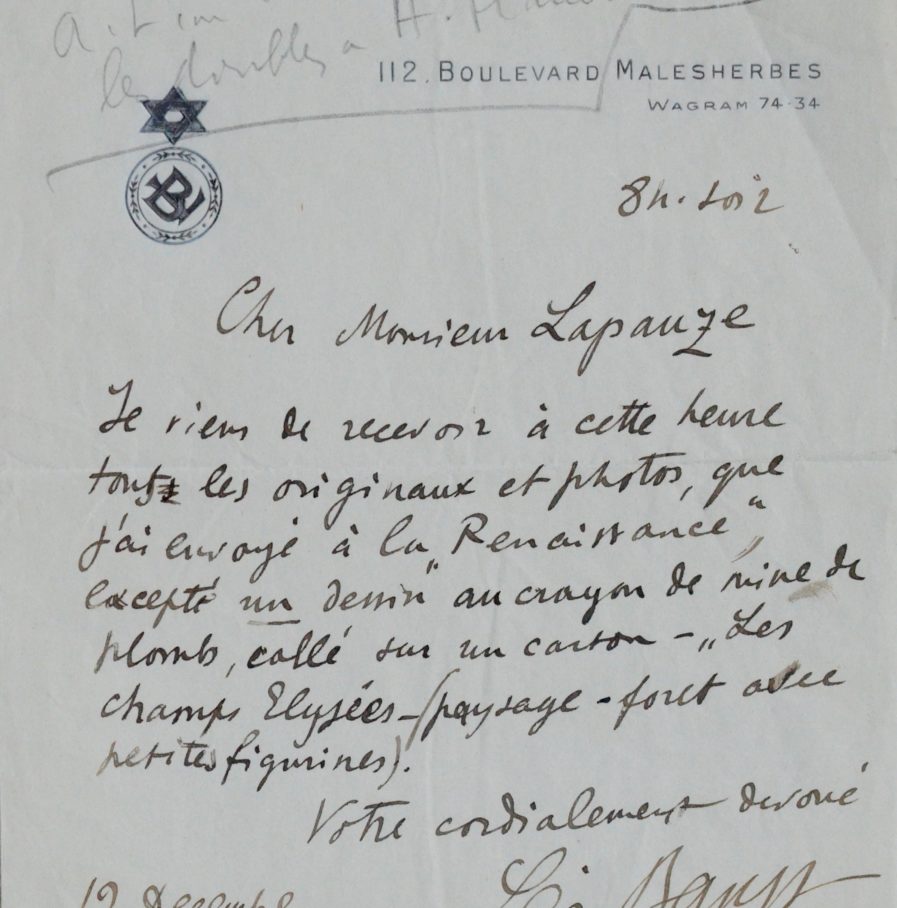 les doubles a H.
112. BOULEVARD MALESHERBES
WAGRAM 74-34
8h. soir
Cher Monsieur Lapauze
Je viens de recevoir à cette heure
touts les originaux et photos, que
j'ai envoyé à la „Renaissance“,
excepté un dessin au crayon de mine de
plomb, collé sur un carton – „Les
champs Elysées – (paysage - foret avec
petites figurines).
Votre cordialement devoué
Bakst
19 Decembre